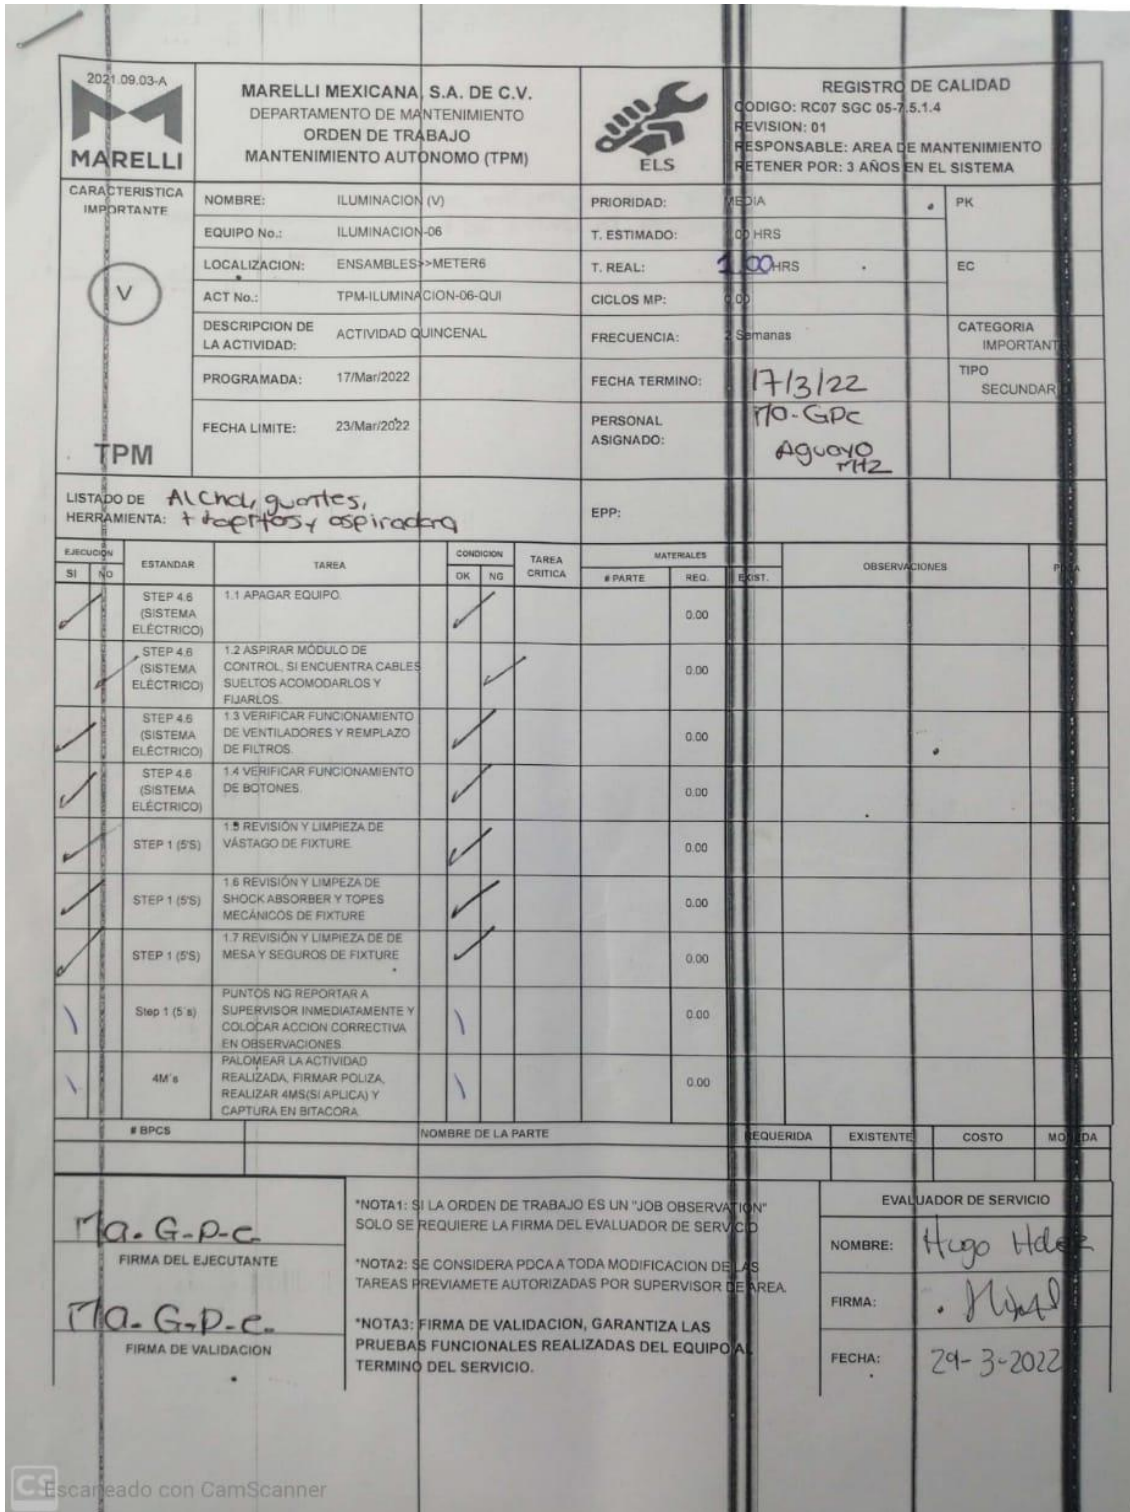 2021.09.03-A
MARELLI
MARELLI MEXICANA, S.A. DE C.V.
DEPARTAMENTO DE MANTENIMIENTO
ORDEN DE TRABAJO
MANTENIMIENTO AUTONOMO (TPM)
ELS
REGISTRO DE CALIDAD
CODIGO: RC07 SGC 05-7.5.1.4
REVISION: 01
RESPONSABLE: AREA DE MANTENIMIENTO
RETENER POR: 3 AÑOS EN EL SISTEMA
CARACTERISTICA
IMPORTANTE
V
TPM
NOMBRE: ILUMINACION (V)
PRIORIDAD: MEDIA
PK
EQUIPO No.: ILUMINACION-06
T. ESTIMADO: HRS
LOCALIZACION: ENSAMBLES>>METER6
T. REAL: 1.00 HRS
EC
ACT No.: TPM-ILUMINACION-06-QUI
CICLOS MP:
DESCRIPCION DE
LA ACTIVIDAD: ACTIVIDAD QUINCENAL
FRECUENCIA: 2 Semanas
CATEGORIA
IMPORTANTE
PROGRAMADA: 17/Mar/2022
FECHA TERMINO: 17/3/22
TIPO
SECUNDAR
FECHA LIMITE: 23/Mar/2022
PERSONAL
ASIGNADO: Ma-GPe
Aguayo
LISTADO DE
HERRAMIENTA: Alchol, guantes,
y aspiradora
EPP:
EJECUCION
SI NO
ESTANDAR
TAREA
CONDICION
OK NG
TAREA
CRITICA
MATERIALES
# PARTE REQ. EXIST.
OBSERVACIONES
STEP 4.6
(SISTEMA
ELÉCTRICO)
1.1 APAGAR EQUIPO.
0.00
STEP 4.6
(SISTEMA
ELÉCTRICO)
1.2 ASPIRAR MÓDULO DE
CONTROL, SI ENCUENTRA CABLES
SUELTOS ACOMODARLOS Y
FIJARLOS.
0.00
STEP 4.6
(SISTEMA
ELÉCTRICO)
1.3 VERIFICAR FUNCIONAMIENTO
DE VENTILADORES Y REMPLAZO
DE FILTROS.
0.00
STEP 4.6
(SISTEMA
ELÉCTRICO)
1.4 VERIFICAR FUNCIONAMIENTO
DE BOTONES.
0.00
STEP 1 (5'S)
1.5 REVISIÓN Y LIMPIEZA DE
VÁSTAGO DE FIXTURE
0.00
STEP 1 (5'S)
1.6 REVISIÓN Y LIMPEZA DE
SHOCK ABSORBER Y TOPES
MECÁNICOS DE FIXTURE
0.00
STEP 1 (5'S)
1.7 REVISIÓN Y LIMPIEZA DE DE
MESA Y SEGUROS DE FIXTURE
0.00
Step 1 (5´s)
PUNTOS NG REPORTAR A
SUPERVISOR INMEDIATAMENTE Y
COLOCAR ACCION CORRECTIVA
EN OBSERVACIONES.
0.00
4M´s
PALOMEAR LA ACTIVIDAD
REALIZADA, FIRMAR POLIZA,
REALIZAR 4MS(SI APLICA) Y
CAPTURA EN BITACORA.
0.00
# BPCS NOMBRE DE LA PARTE REQUERIDA EXISTENTE COSTO MONEDA
Ma. G-p-e
FIRMA DEL EJECUTANTE
Ma. G-p-e.
FIRMA DE VALIDACION
*NOTA1: SI LA ORDEN DE TRABAJO ES UN "JOB OBSERVATION"
SOLO SE REQUIERE LA FIRMA DEL EVALUADOR DE SERVICIO
*NOTA2: SE CONSIDERA PDCA A TODA MODIFICACION DE LAS
TAREAS PREVIAMETE AUTORIZADAS POR SUPERVISOR DE AREA.
*NOTA3: FIRMA DE VALIDACION, GARANTIZA LAS
PRUEBAS FUNCIONALES REALIZADAS DEL EQUIPO AL
TERMINO DEL SERVICIO.
EVALUADOR DE SERVICIO
NOMBRE: Hugo Hdez
FIRMA:
FECHA: 29-3-2022
CS Escaneado con CamScanner